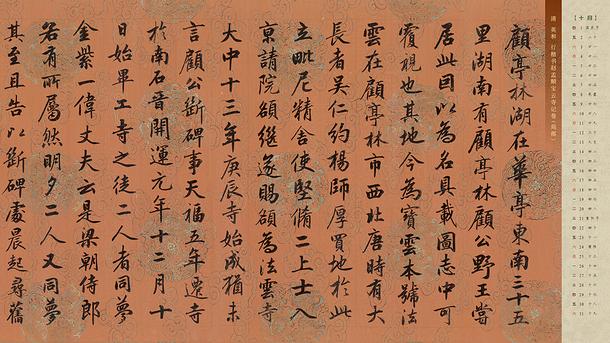 【十月】
清 英和 行楷书赵孟頫宝云寺记卷（局部）
顧亭林湖在華亭東南三十五
里湖南有顧亭林顧公野王嘗
居此因以為名具載圖志中可
覆視也其地今為寶雲本號法
雲在顧亭林市西北唐時有大
長者吳仁約楊師厚買地於此
立毗尼精舍使堅脩二上士入
京請院額繼遂賜額為法雲寺
大中十三年庚辰寺始成猶未
言顧公斷碑事天福五年遷寺
於南石晉開運元年十二月十
日始畢工寺之徒二人者同夢
金紫一偉丈夫云是梁朝侍郎
若有所屬然明夕二人又同夢
其至且告以斷碑處晨起尋舊